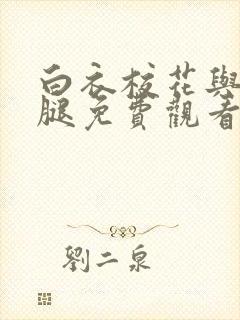 白衣校花與
腿免費觀看
劉二泉